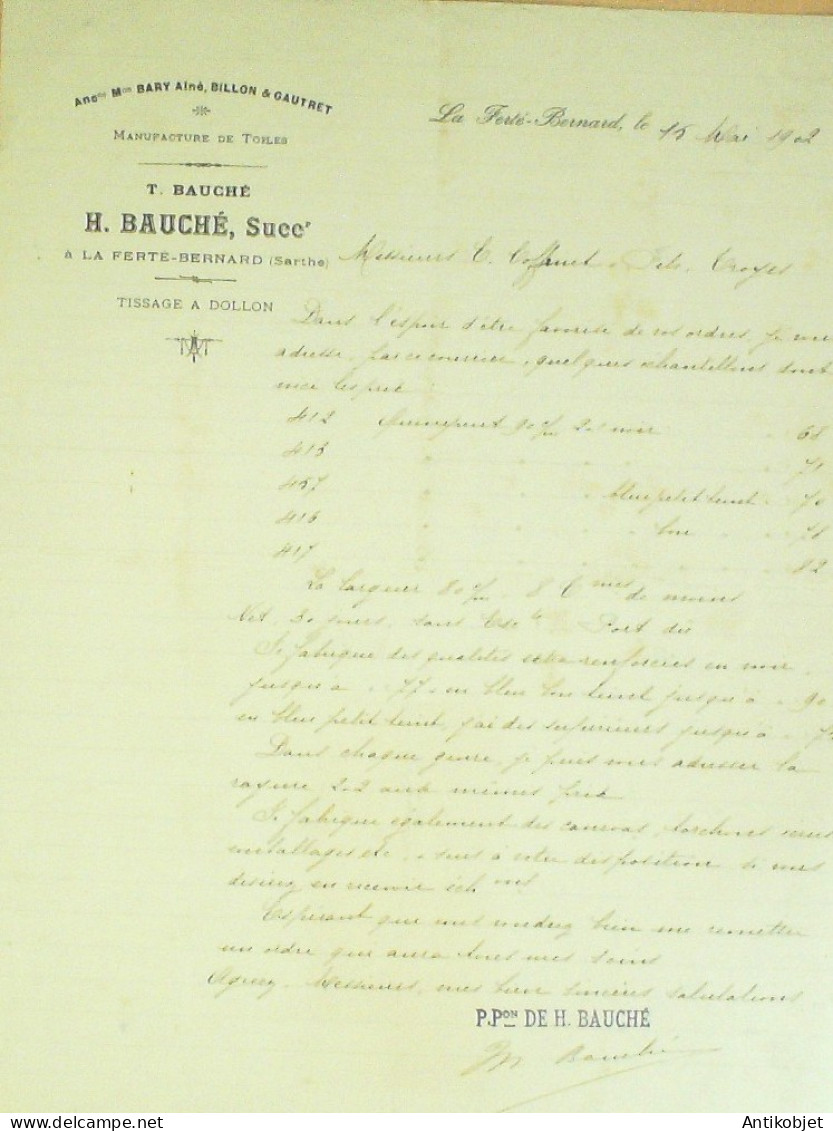 Ancne Mon BARY Aîné, BILLON & GAUTRET
MANUFACTURE DE TOILES
T. BAUCHÉ
H. BAUCHÉ, Succr
À LA FERTÉ-BERNARD (Sarthe)
TISSAGE A DOLLON
La Ferté-Bernard, le 15 Mai 1902
Messieurs Fils, Troyes
Dans l'espoir d'être favorisé de vos ordres, je vous
adresse, par ce courrier, quelques échantillons dont
voici les prix :
412 90 c/m 2 noir 68
413 " 71
457 " bleu petit teint 70
416 " bon " 78
417 " 82
La largeur 80 c/m 8 Cmes de moins
Net, 30 jours, sans Escte Port dû
Je fabrique des qualités extra renforcées en noir,
jusqu'à 77, en bleu bon teint jusqu'à 90
en bleu petit teint, j'ai des supérieurs jusqu'à
Dans chaque genre, je puis vous adresser la
rayure 2.2 aux mêmes prix
Je fabrique également des canevas, torchons,
emballages etc, à votre disposition si vous
désirez en recevoir échons
Espérant que vous voudrez bien me remettre
un ordre qui aura tous mes soins
Agréez, Messieurs, mes bien sincères salutations
P.PON DE H. BAUCHÉ
Bauché
Antikobjet